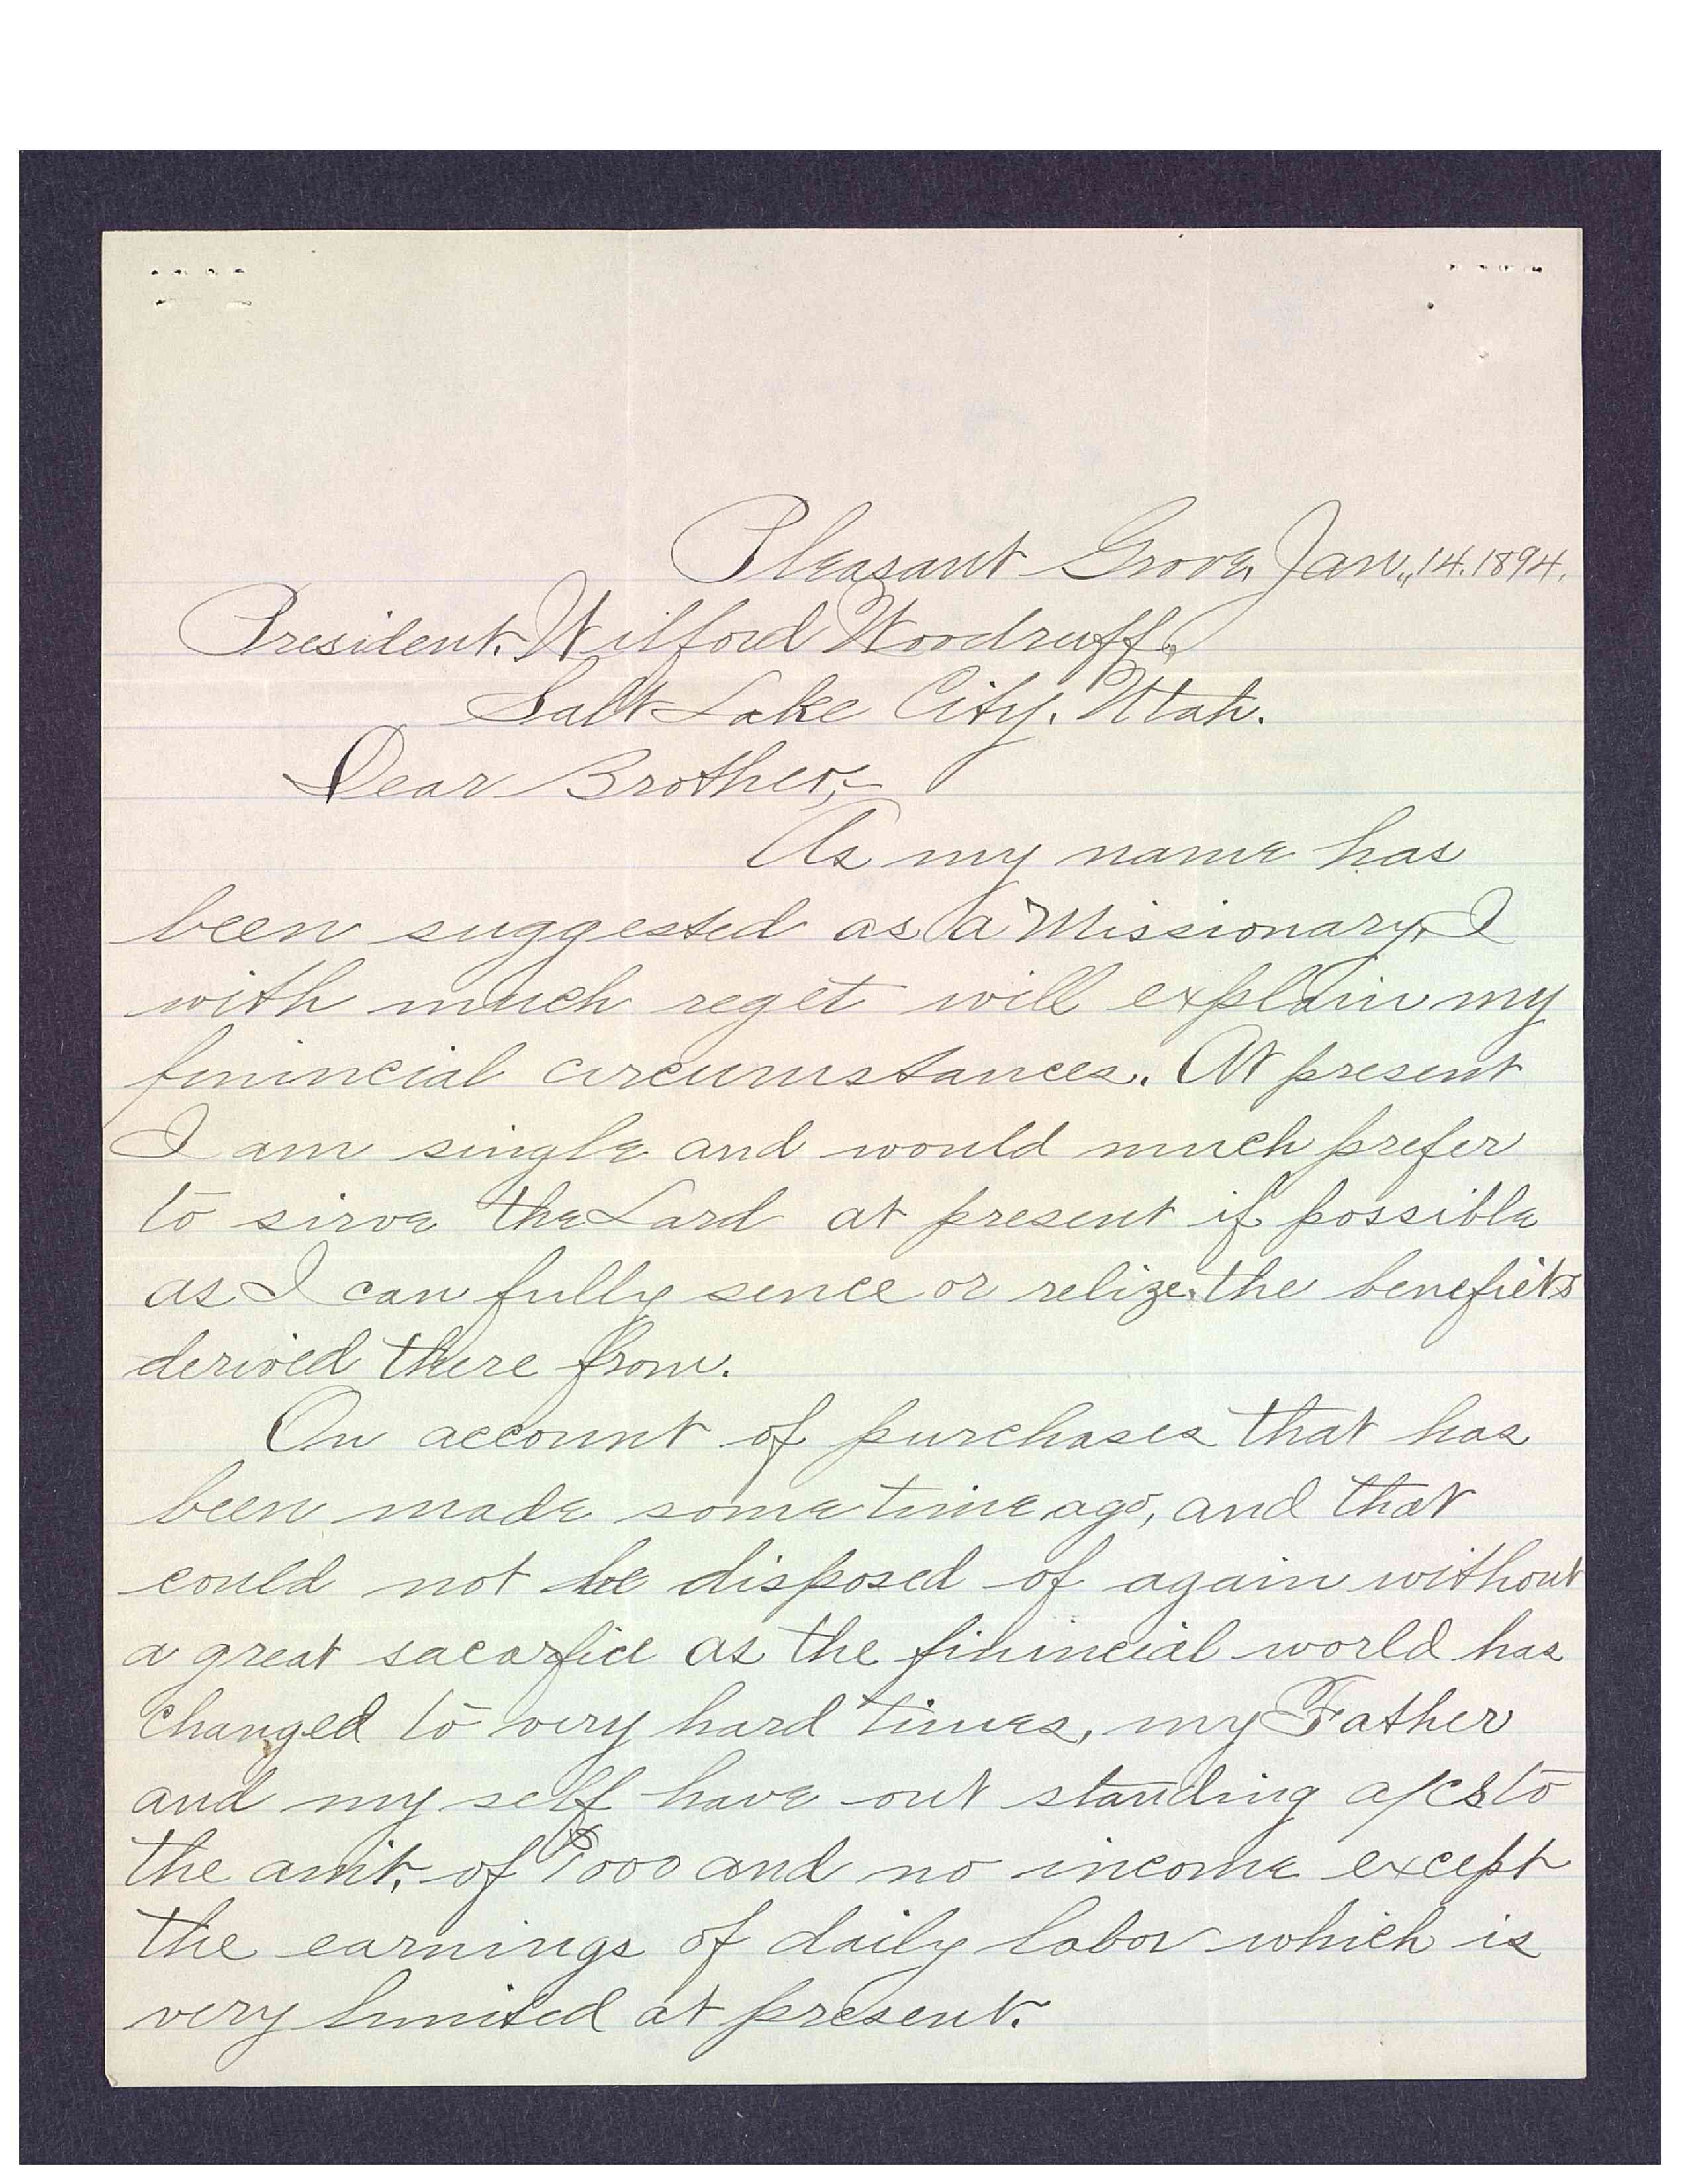 Pleasant Grove, Jan., 14. 1894.
President. Wilford Woodruff,
Salt Lake City. Utah.
Dear Brother,-
As my name has
been suggested as a Missionary, I
with much reget will explain my
finincial circumstances. At present
I am single and would much prefer
to sirve the Lard at present if possible
as I can fully sence or relize, the benefiets
derived there from.
On account of purchases that has
been made some time ago, and that
could not be disposed of again without
a great sacarfice as the finincial world has
changed to very hard times, my Father
and my self have out standing a/cs to
the amt, of $1000 and no income except
the earnings of daily labor which is
very limited at present.